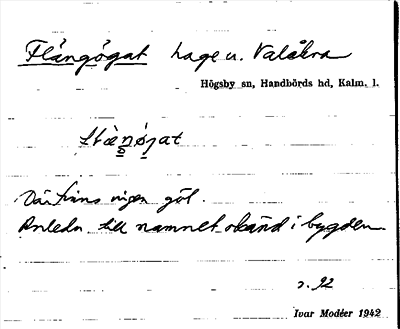 Flångögat hage u. Valåkra
Högsby sn, Handbörds hd, Kalm. l.
Där finns ingen göl.
Anledn. till namnet okänd i bygden.
s. 92
Ivar Modéer 1942